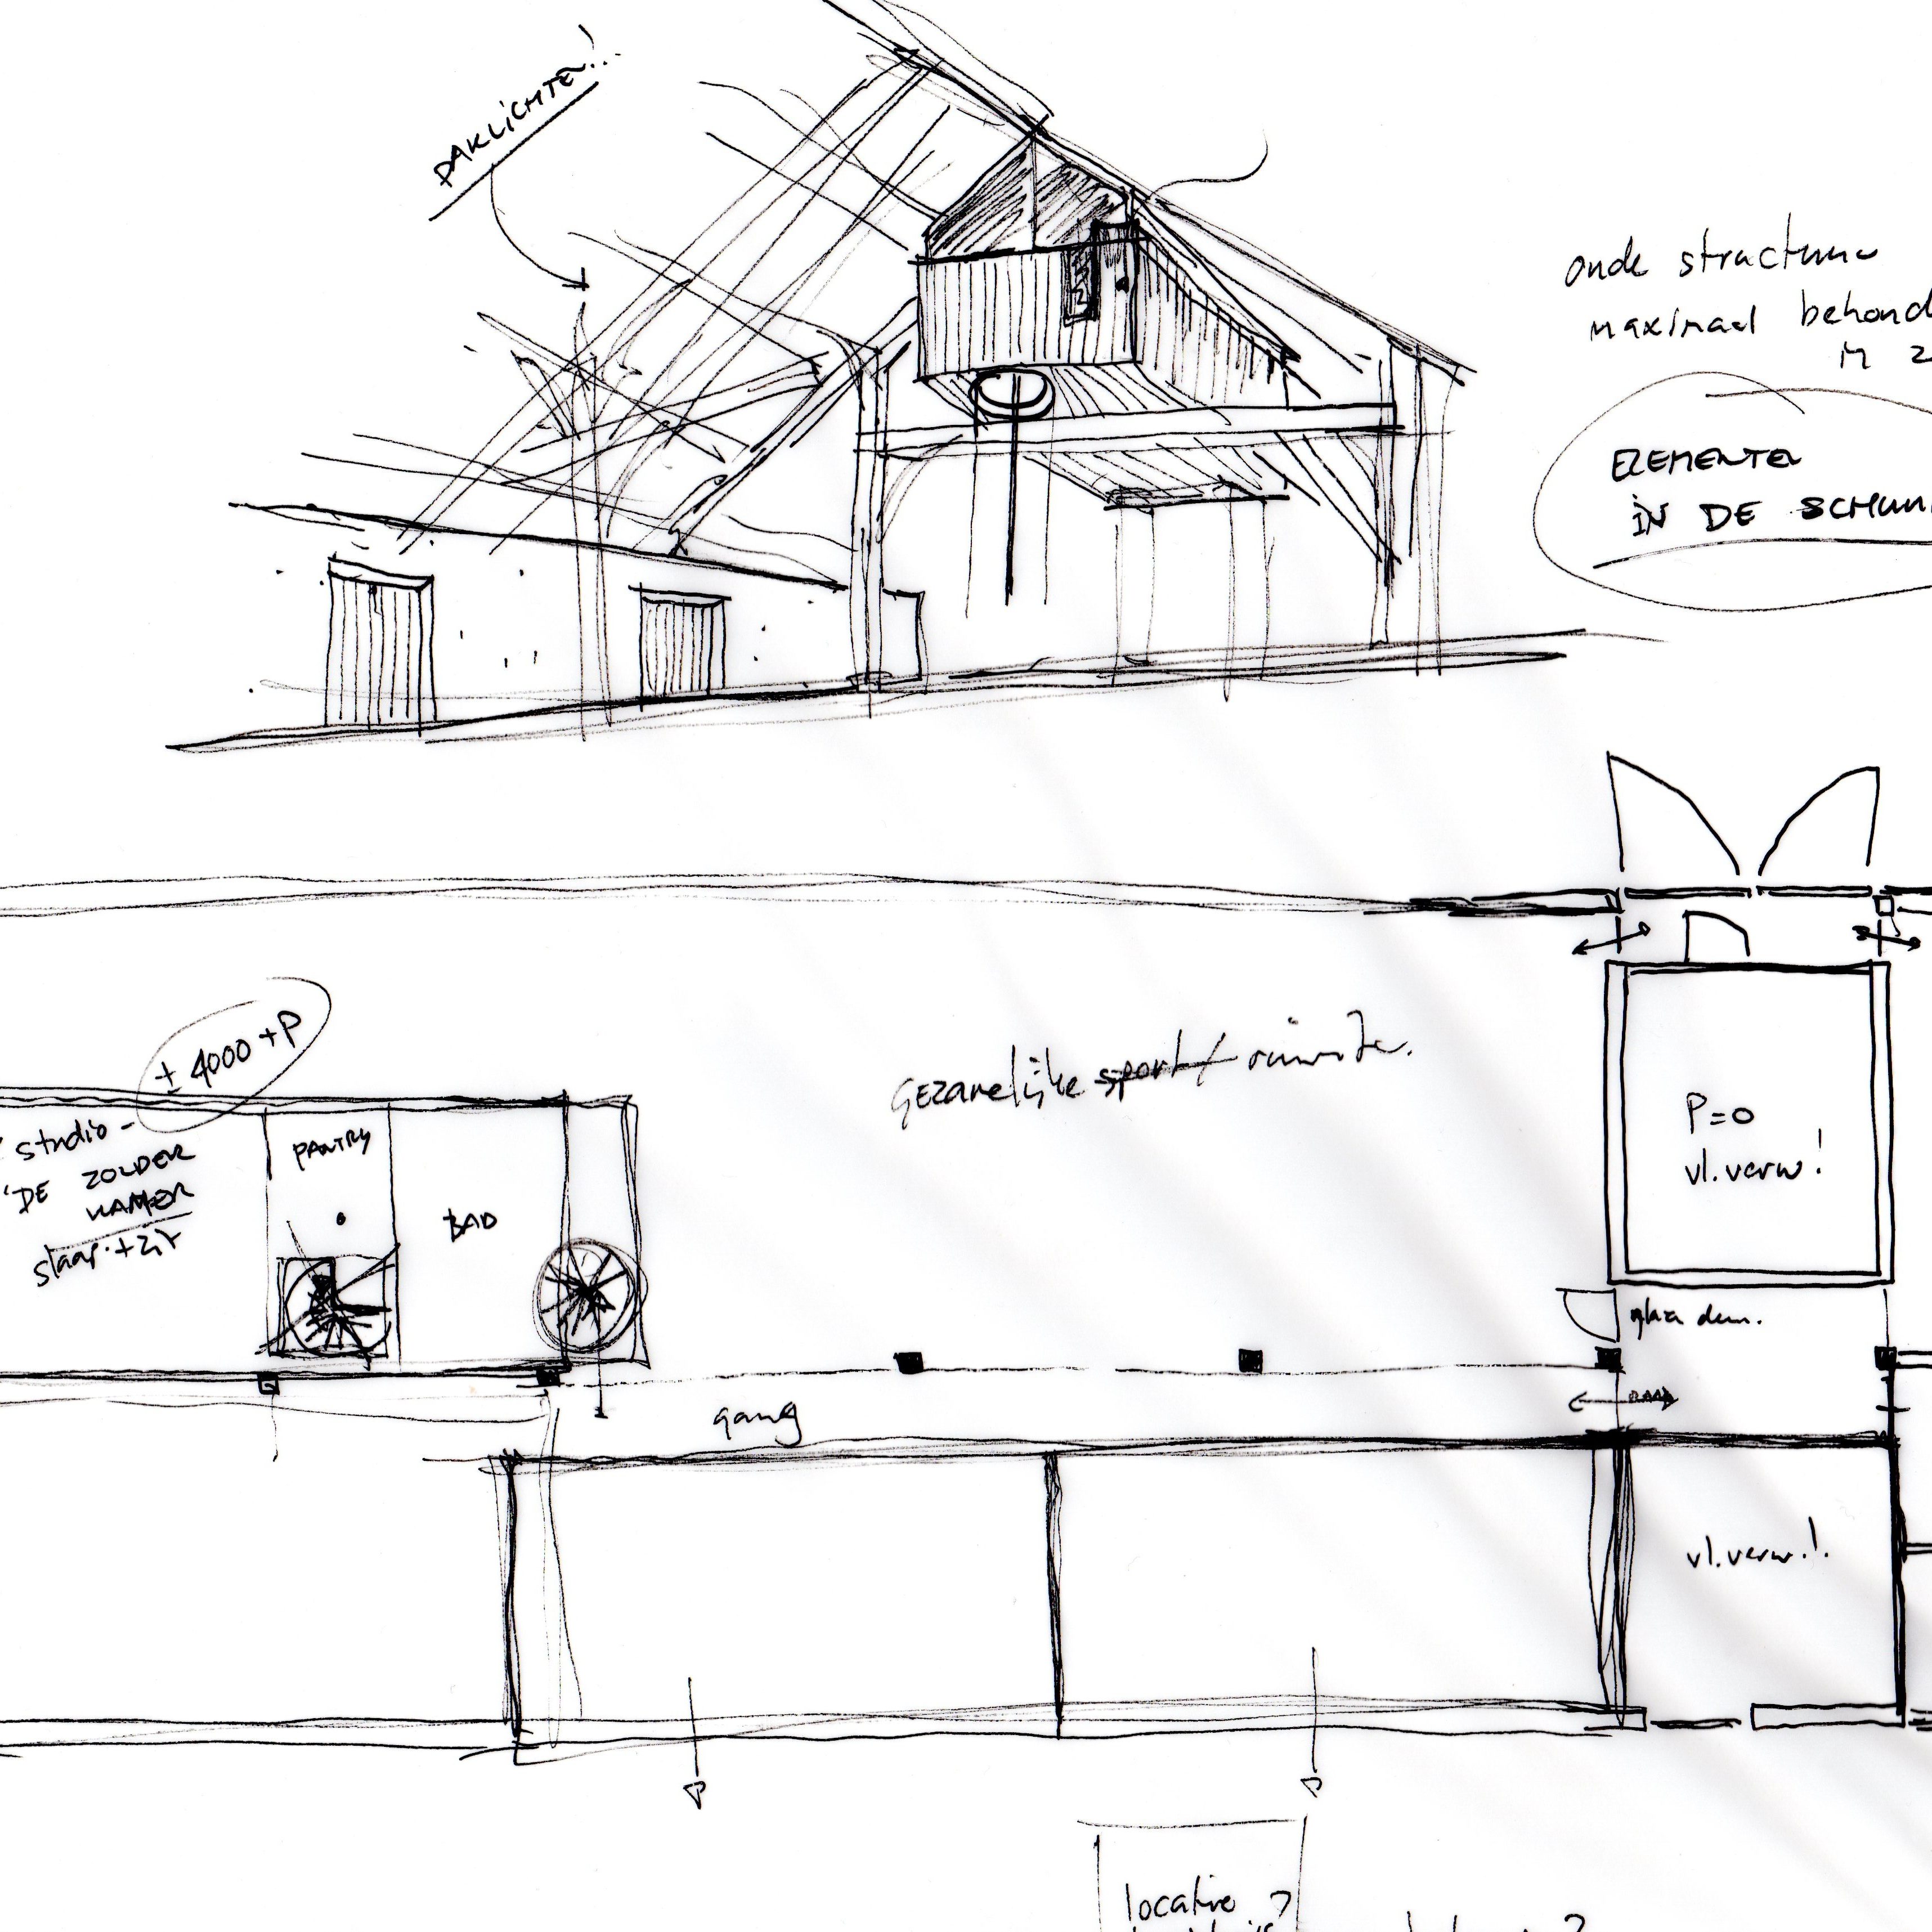 DAKLICHTEN!..
oude structuur
maximaal behoud
ELEMENTEN
IN DE SCHUU
± 4000 + P
studio -
'DE ZOLDER
KAMER
slaap. + zit
PANTRY
BAD
GEZAMELIJKE sport/ ruimte.
P=0
vl. verw!
gang
vl. verw.!.
locatie ?